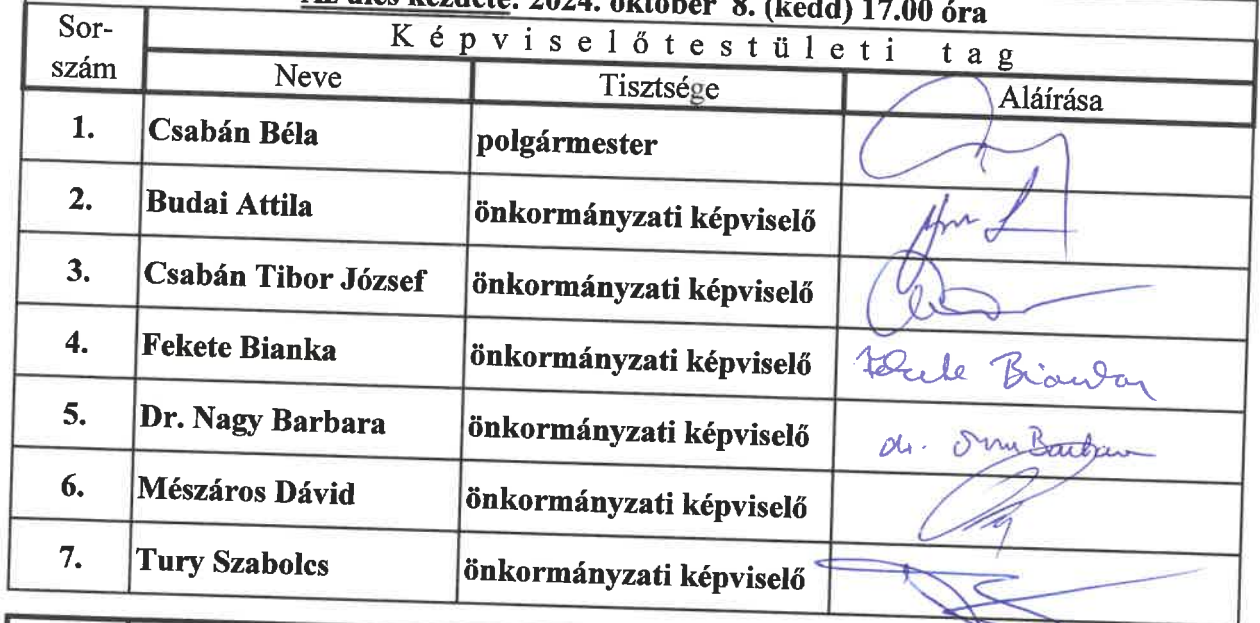 Az ülés kezdete: 2024. október 8. (kedd) 17.00 óra
Sor-szám Képviselőtestületi tag
Neve Tisztsége Aláírása
1. Csabán Béla polgármester
2. Budai Attila önkormányzati képviselő
3. Csabán Tibor József önkormányzati képviselő
4. Fekete Bianka önkormányzati képviselő Fekete Bianka
5. Dr. Nagy Barbara önkormányzati képviselő dr. Barbara
6. Mészáros Dávid önkormányzati képviselő
7. Tury Szabolcs önkormányzati képviselő